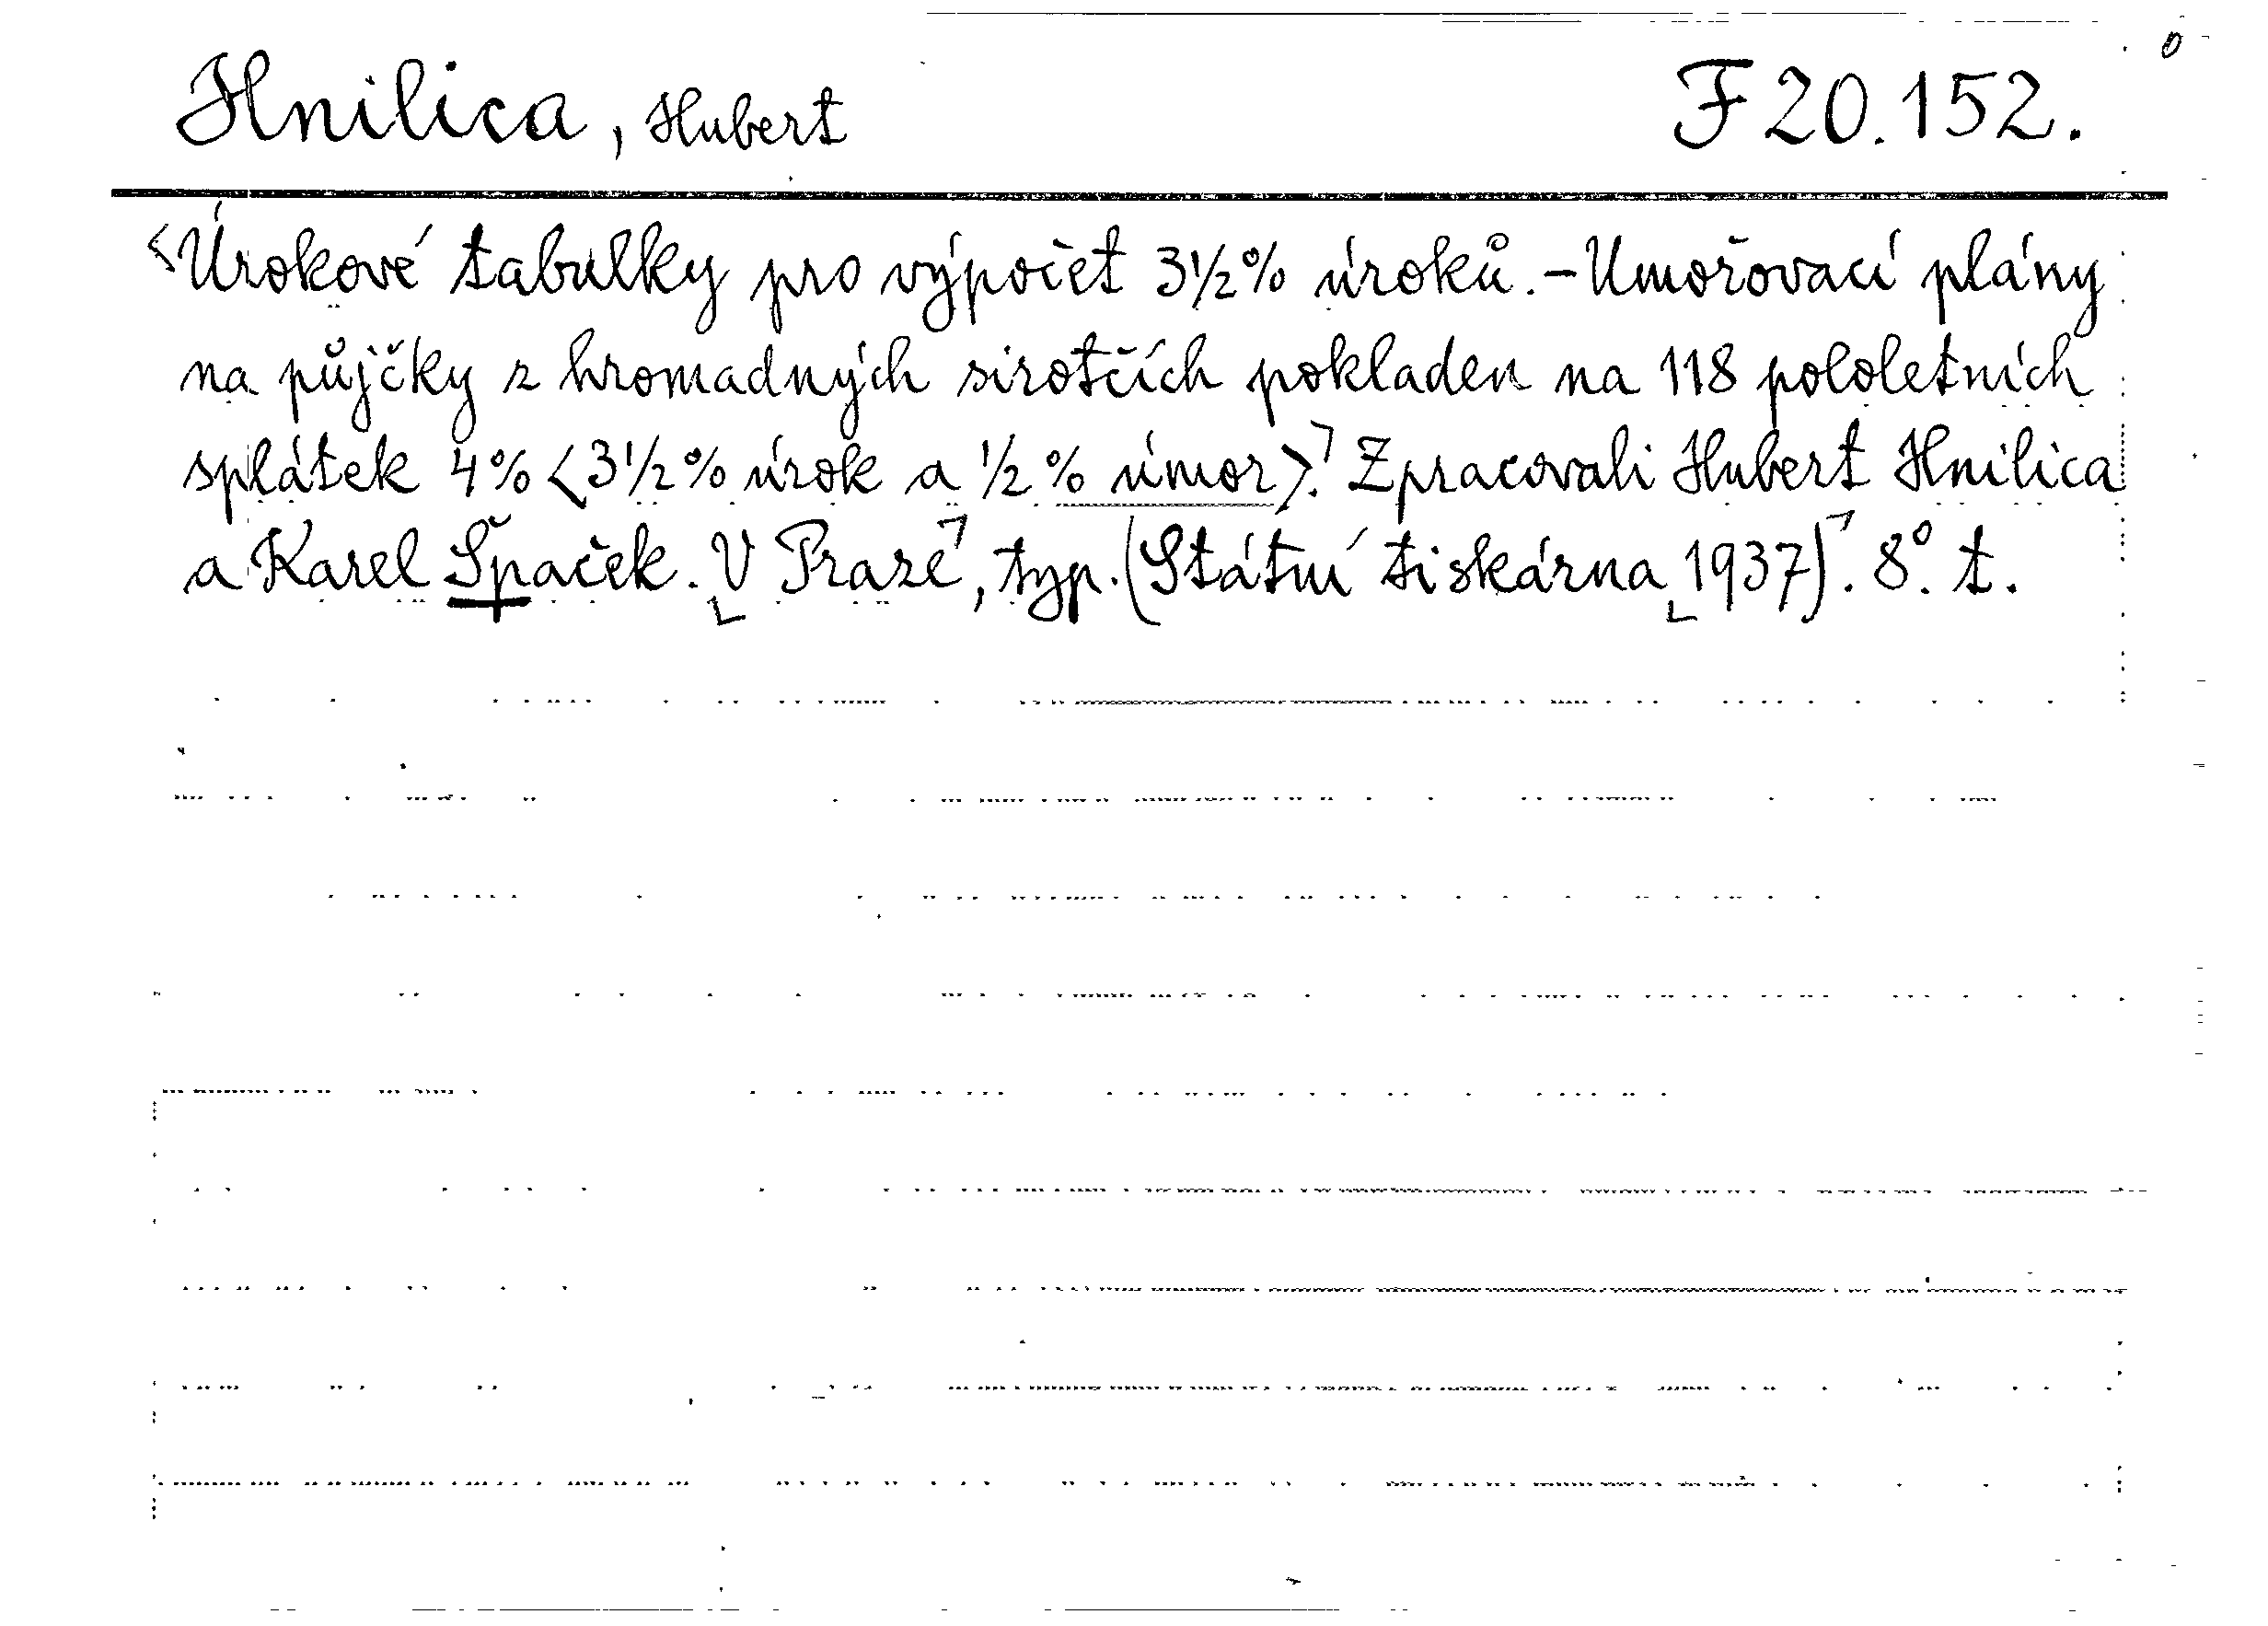 Hnilica, Hubert F 20.152.
Úrokové tabulky pro výpočet 3½% úroků. - Umořovací plány
na půjčky z hromadných sirotčích pokladen na 118 pololetních
splátek 4% <3½% úrok a ½% úmor>. Zpracovali Hubert Hnilica
a Karel Špaček. V Praze, typ. (Státní tiskárna 1937). 8°. t.